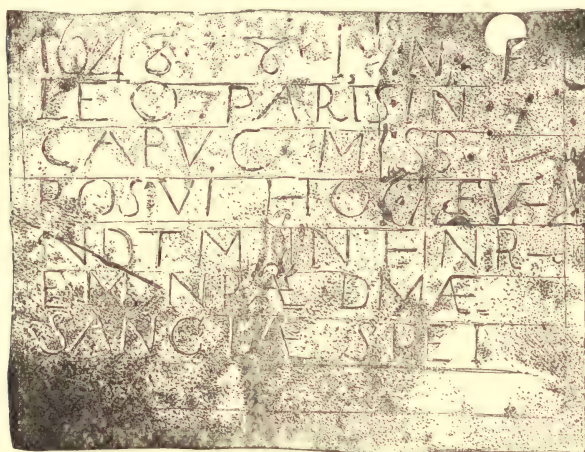 1648 8 IVN. F
LEO PARISIN.
CAPVC. MISS.
POSVI HOC FV-
NDTM IN HNR-
EM NRÆ DMÆ
SANCTÆ SPEI